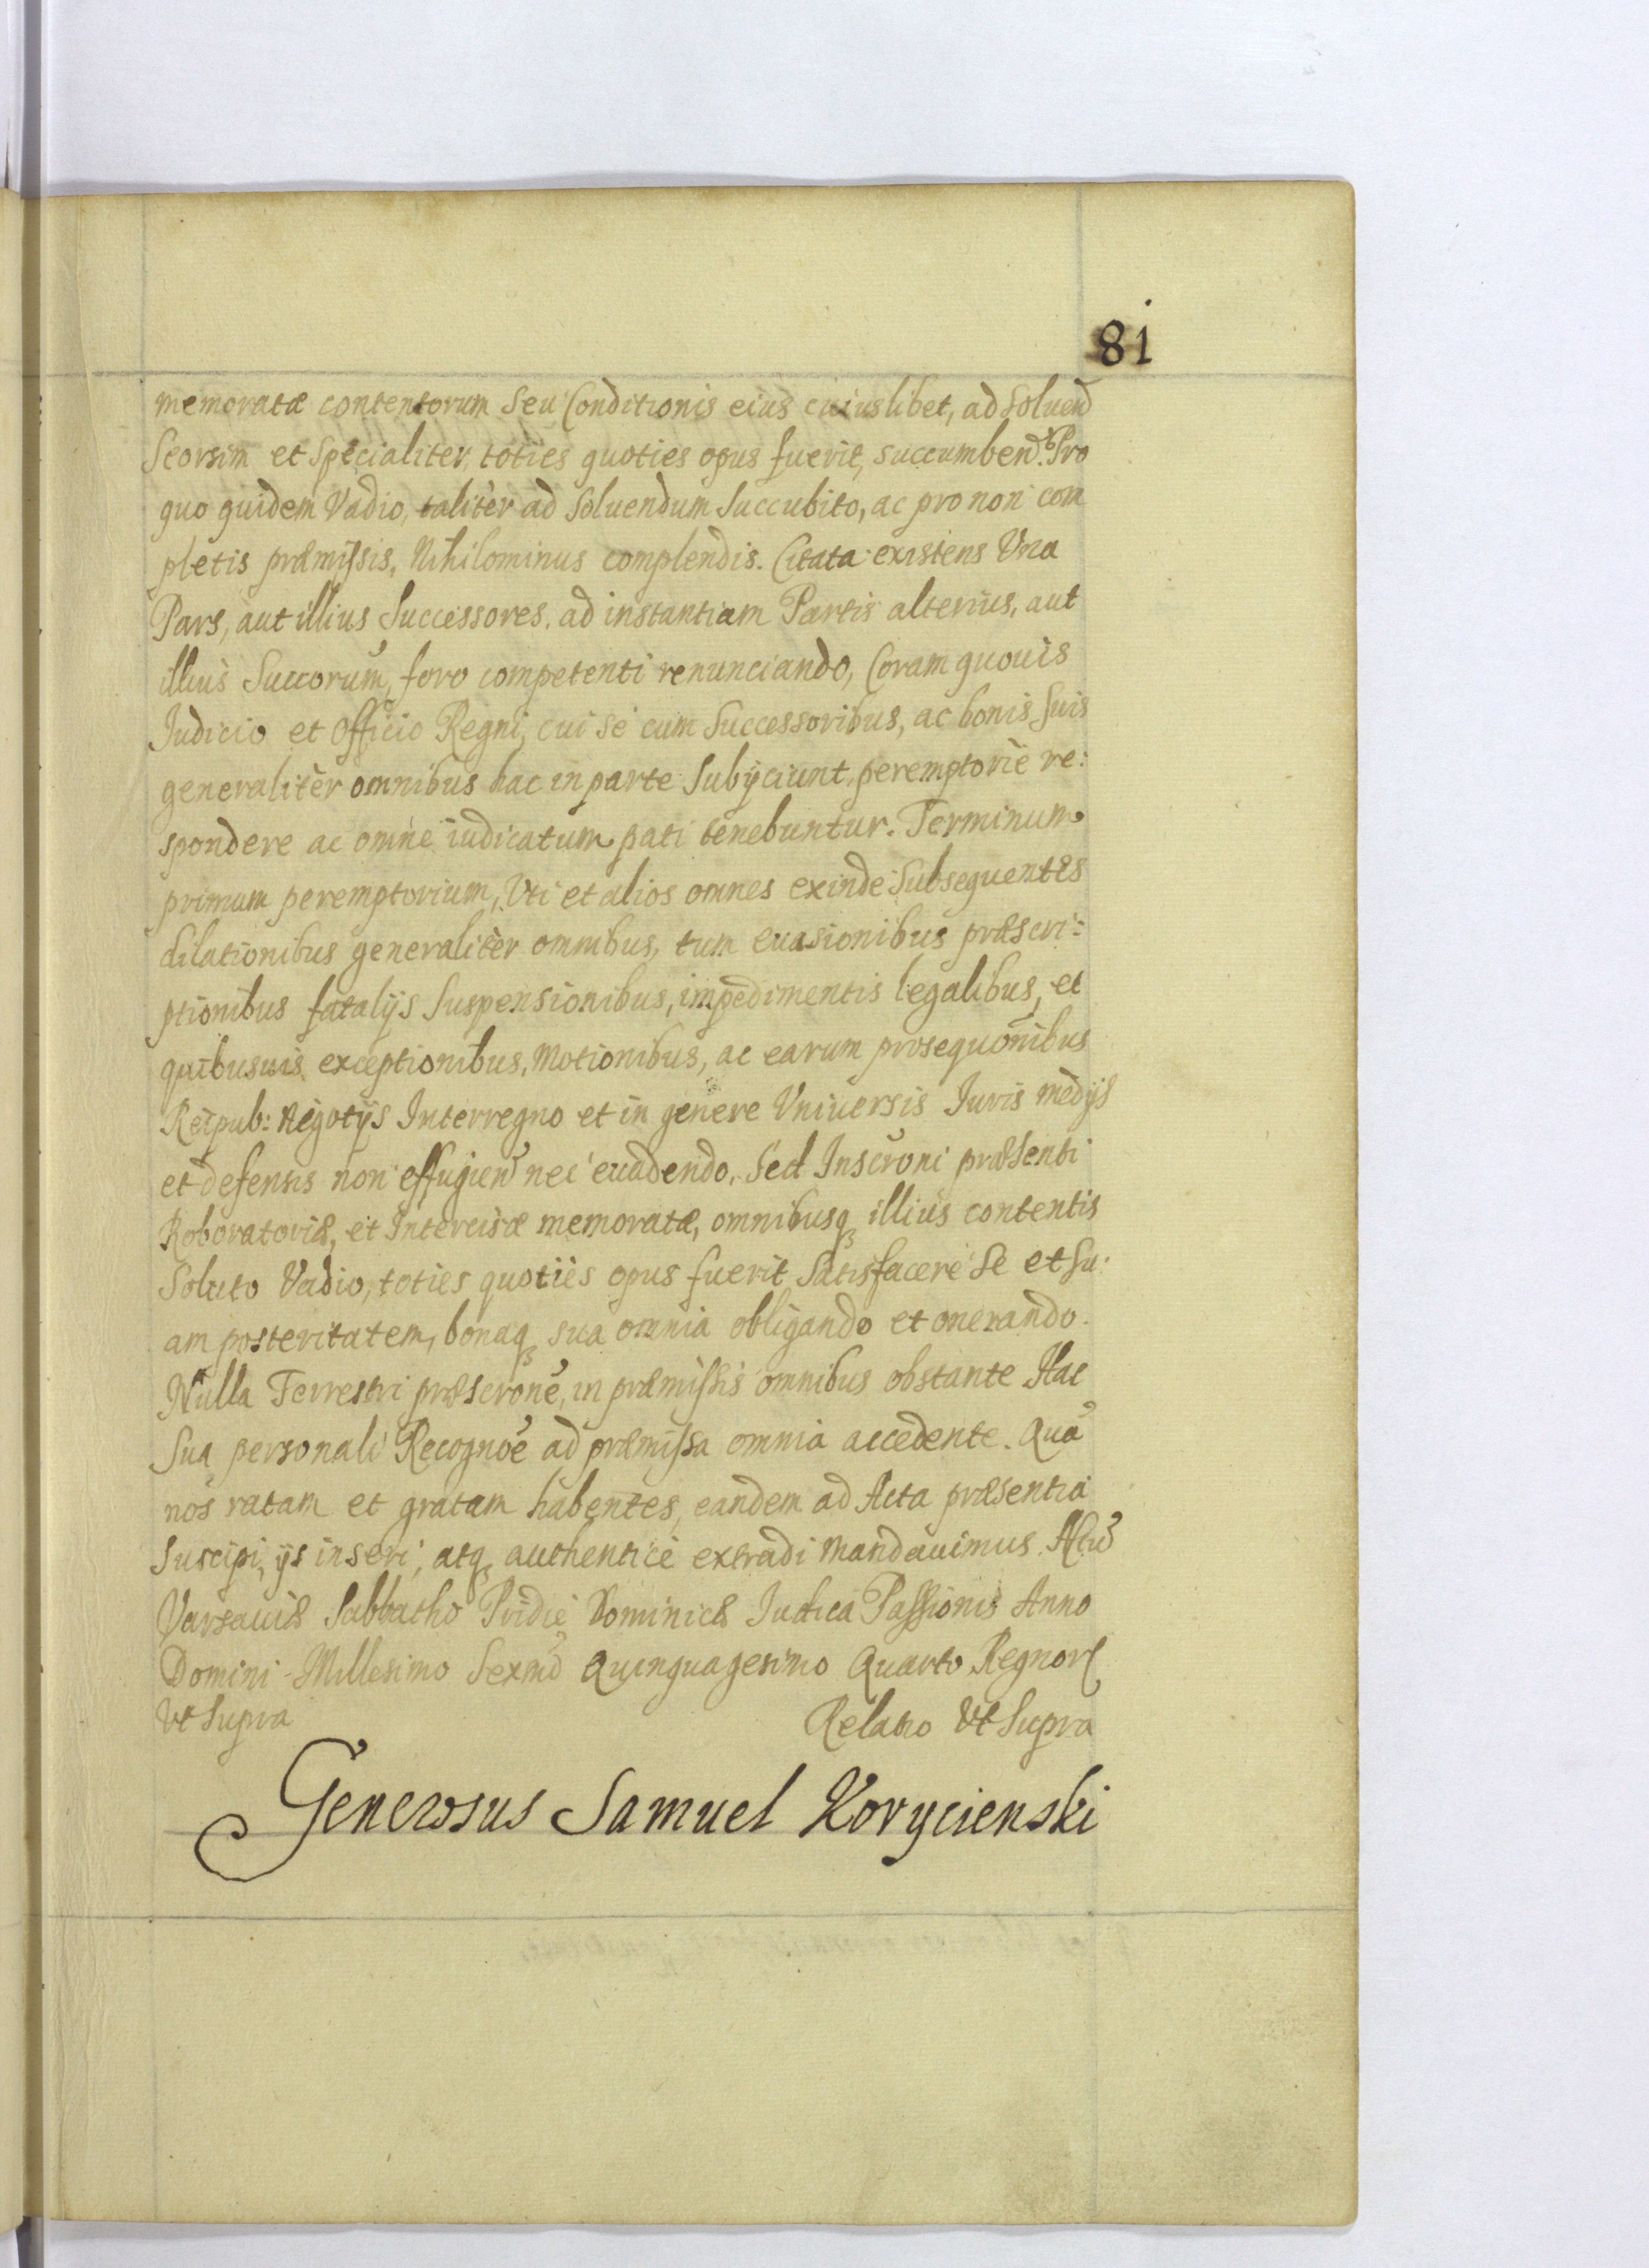 81
memoratæ contentorum Seu Conditionis eius cuiuslibet, ad Soluend
Seorsim et Specialiter, toties quoties opus fuerit, succumbend. Pro
quo quidem Vadio, taliter ad Soluendum Succubito, ac pro non com
pletis præmissis, Nihilominus complendis. Citata existens Vna
Pars, aut illius Successores, ad instantiam Partis alterius, aut
illius Succorum, foro competenti renunciando, Coram quouis
Iudicio et Officio Regni, cui se cum Successoribus, ac bonis suis
generaliter omnibus hac in parte Subijciunt, peremptorie re:
spondere ac omne iudicatum pati tenebuntur. Terminum
primum peremptorium, Vti et alios omnes exinde Subsequentes
dilationibus generaliter omnibus, tum euasionibus præscri:
ptionibus fatalijs Suspensionibus, impedimentis legalibus, et
quibusuis exceptionibus, Motionibus, ac earum prosequonibus
Reipub: Negotijs Interregno et in genere Vniuersis Iuris medijs
et defensis non effugiend nec euadendo, Sed Inscroni præsenti
Roboratoriæ, et Intercisæ memoratæ, omnibusq illius contentis
Soluto Vadio, toties quoties opus fuerit Satisfacere Se et Su:
am posteritatem, bonaq sua omnia obligando et onerando.
Nulla Terrestri præscrone, in præmissis omnibus obstante Hac
Sua personali Recognoe ad præmissa omnia accedente. Qua
nos ratam et gratam habentes, eandem ad Acta præsentia
Suscipi, ijs inseri, atq authentice extradi Mandauimus. Actu
Varsauiæ Sabbatho Pridie Dominicæ Iudica Passionis Anno
Domini Millesimo Sexmo Quinquagesimo Quarto Regnor
Vt Supra Relatio Vt Supra
Generosus Samuel Korycienski